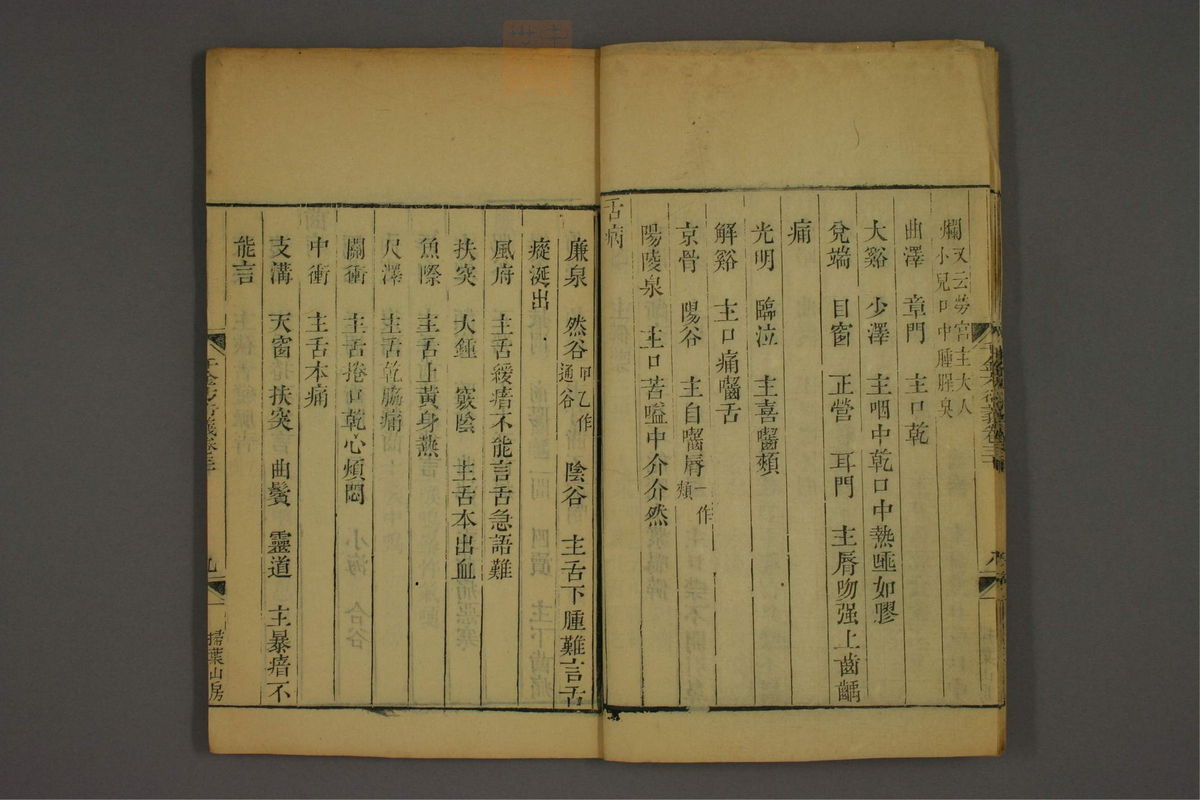 爛又云勞宮主大人
小兒口中腫腥臭
曲澤　章門　主口乾
大谿　少澤　主咽中乾口中熱唾如膠
兌端　目窗　正營　耳門　主脣吻强上齒齲
痛
光明　臨泣　主喜嚙頰
解谿　主口痛嚙舌
京骨　陽谷　主自嚙脣一作頰
陽陵泉　主口苦嗌中介介然
舌病
廉泉　然谷甲乙作通谷　陰谷　主舌下腫難言舌
瘲涎出
風府　主舌緩瘖不能言舌急語難
扶突　大鍾　竅陰　主舌本出血
魚際　主舌上黃身熱
尺澤　主舌乾脇痛
關衝　主舌捲口乾心煩悶
中衝　主舌本痛
支溝　天窗　扶突　曲鬢　靈道　主暴瘖不
能言
九
掃葉山房